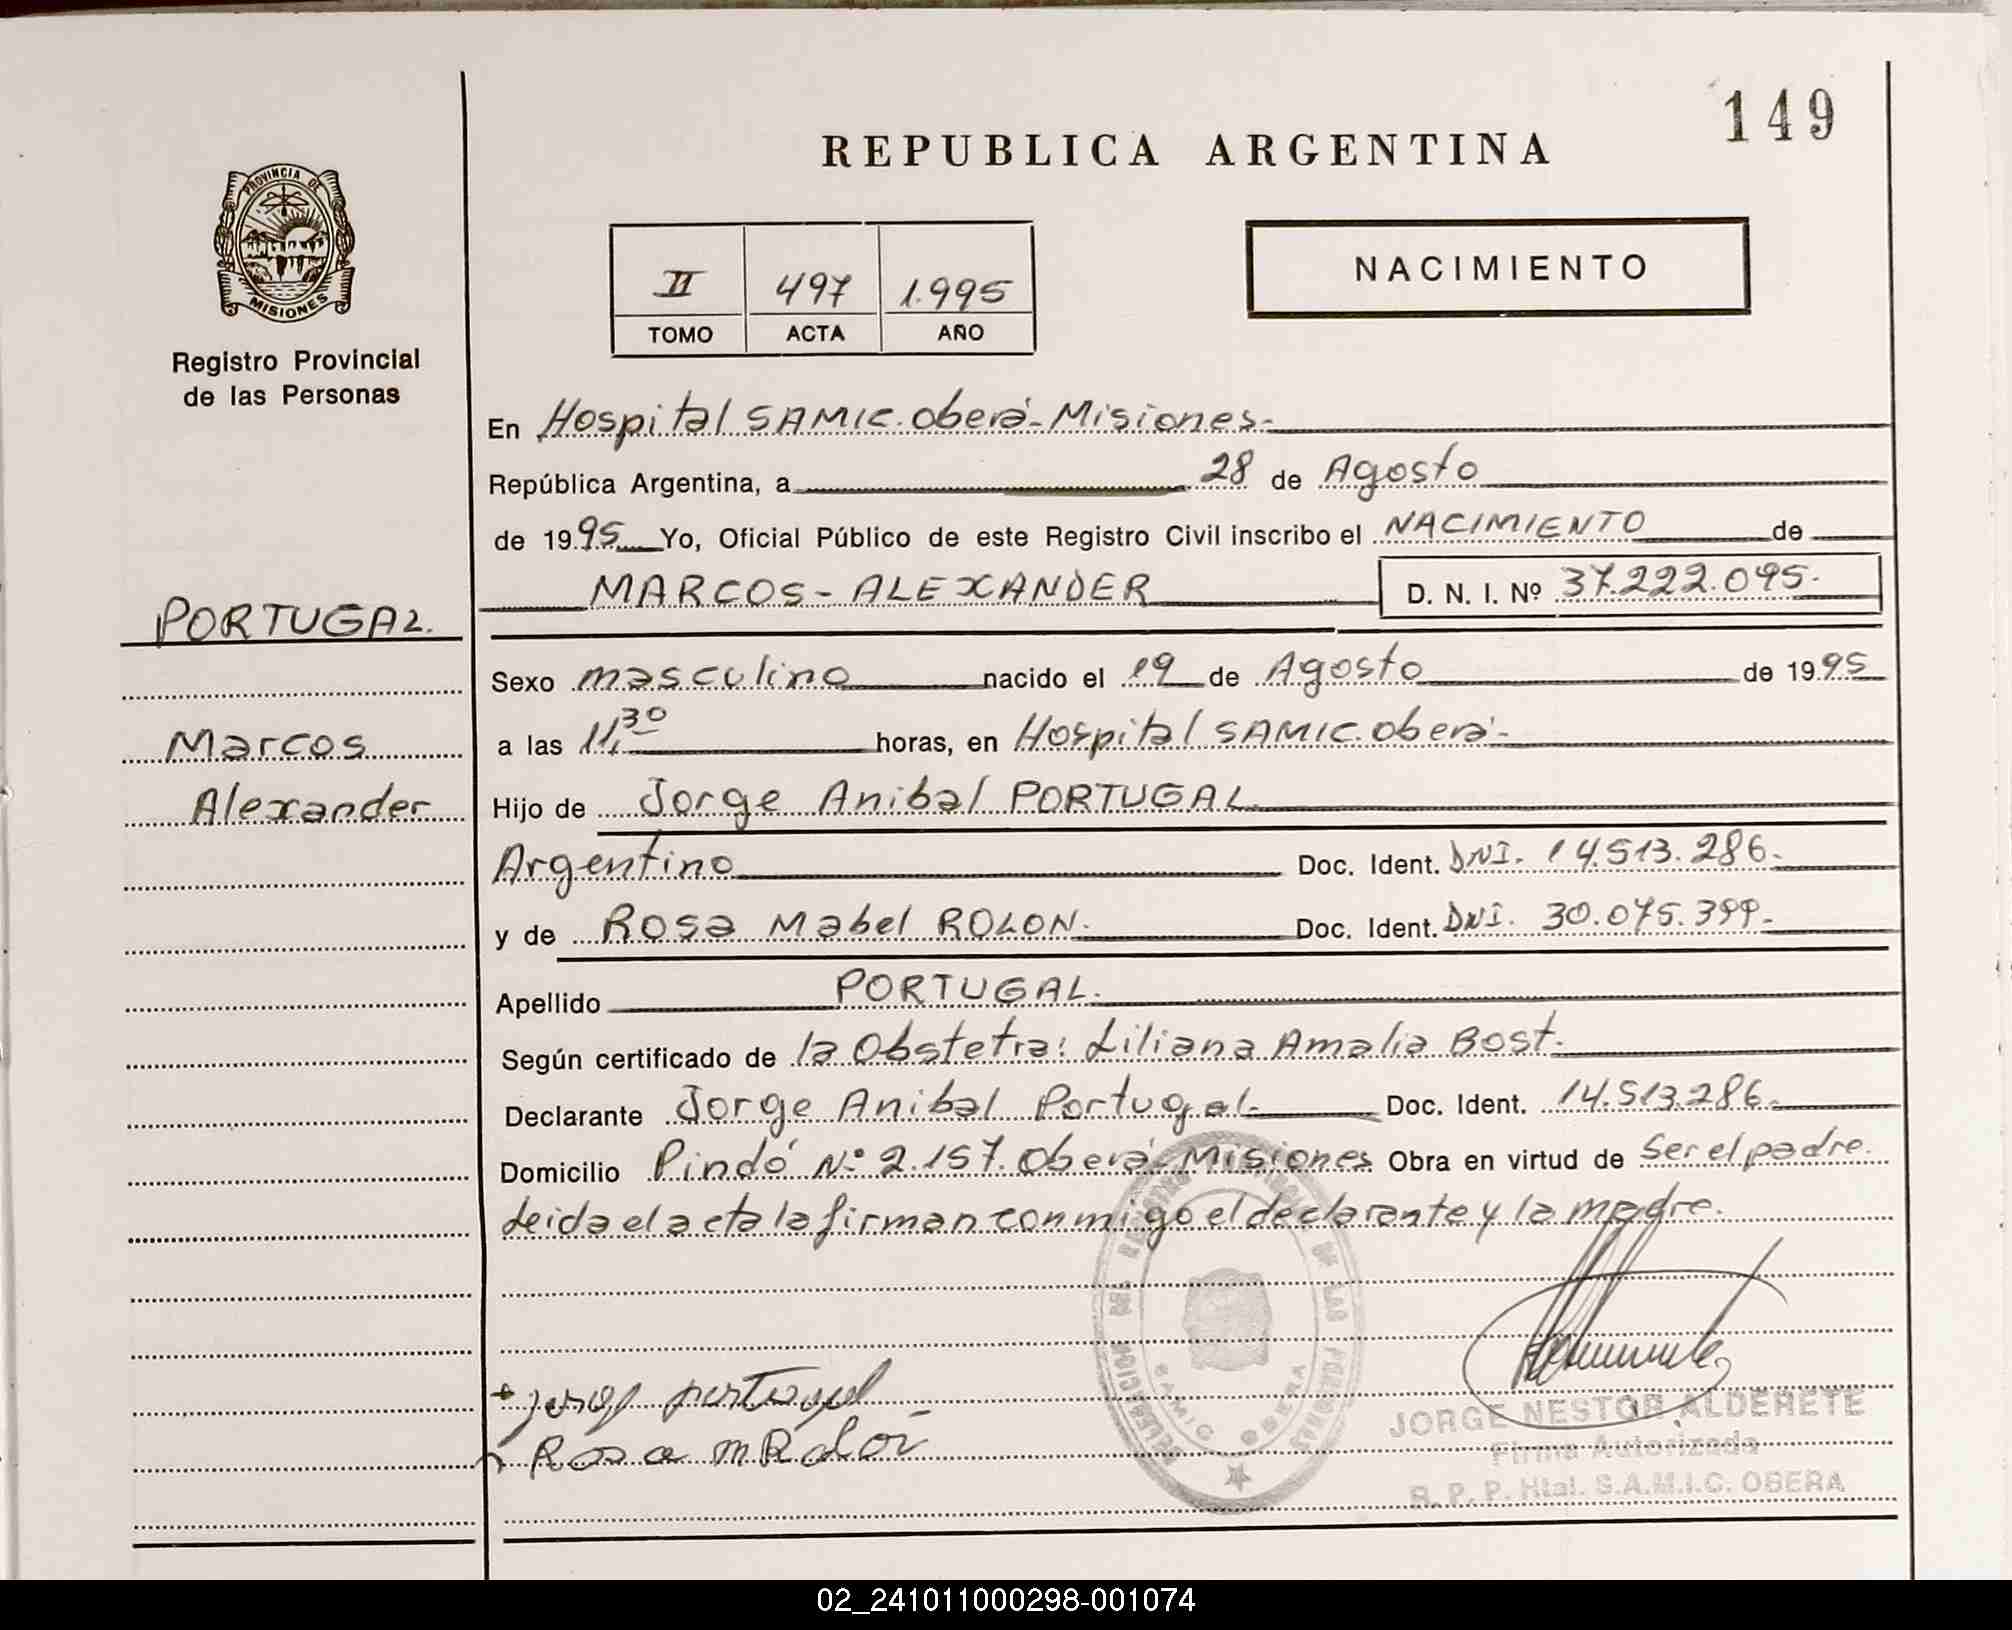 149
REPUBLICA ARGENTINA
PROVINCIA DE
MISIONES
Registro Provincial
de las Personas
II 497 1.995
TOMO ACTA AÑO
NACIMIENTO
En Hospital SAMIC. Oberá- Misiones-
República Argentina, a 28 de Agosto
de 1995 Yo, Oficial Público de este Registro Civil inscribo el NACIMIENTO de
MARCOS- ALEXANDER D. N. I. Nº 37.222.095.
PORTUGAL.
Marcos
Alexander
Sexo masculino nacido el 19 de Agosto de 1995
a las 11,30 horas, en Hospital SAMIC. Oberá-
Hijo de Jorge Anibal PORTUGAL
Argentino Doc. Ident. DNI. 14.513.286.
y de Rosa Mabel ROLON. Doc. Ident. DNI. 30.075.399.
Apellido PORTUGAL.
Según certificado de la Obstetra: Liliana Amalia Bost.
Declarante Jorge Anibal Portugal Doc. Ident. 14.513.286.
Domicilio Pindó Nº 2.157. Oberá- Misiones Obra en virtud de Ser el padre.
Leida el acta la firman conmigo el declarante y la madre.
portugal
Rosa M Rolon
SAMIC OBERA
JORGE NESTOR ALDERETE
Firma Autorizada
R. P. P. Htal. S.A.M.I.C. OBERA
02_241011000298-001074